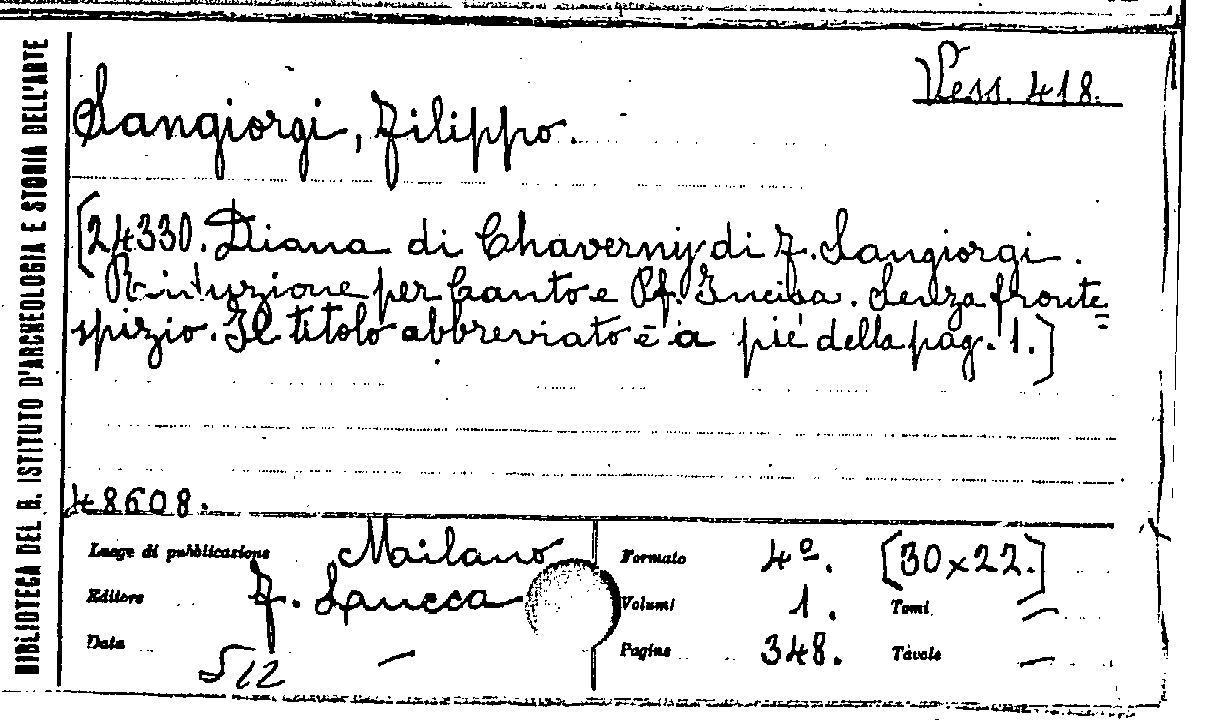 Vess. 418.
Sangiorgi, Filippo.
[24330. Diana di Chaverny di F. Sangiorgi.
Riduzione per Canto e Pf. Incisa. Senza fronte=
spizio. Il titolo abbreviato è a pié della pag. 1.]
48608.
Luogo di pubblicazione Mailano
Editore F. Lucca
Data —
512
Formato 4º. [30x22.]
Volumi 1. Tomi —
Pagine 348. Tavole —
BIBLIOTECA DEL R. ISTITUTO D'ARCHEOLOGIA E STORIA DELL'ARTE